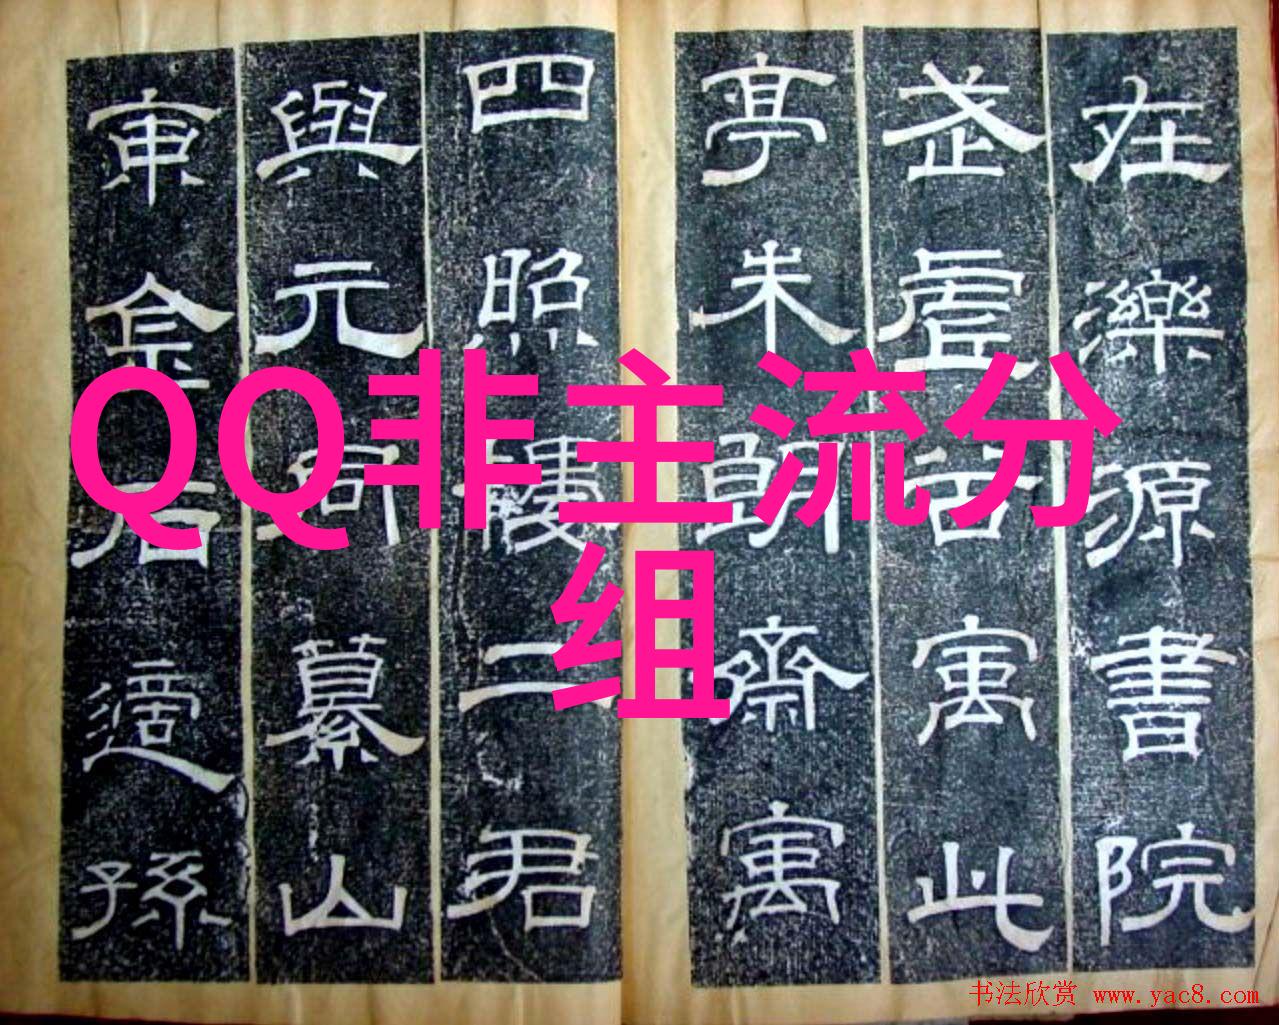 在濼源書院
武虛谷寓此
亭朱朗齋寓
四照樓二君
與元同纂山
東金石適孫
QQ非主流分
组
书法欣赏 www.yac8.com